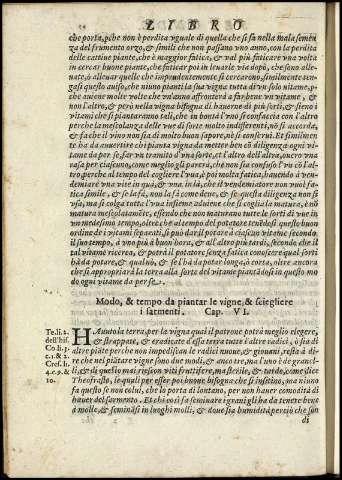 LIBRO
che porta, pche non è perdita vguale di quella che si fa nella mala semen
za del frumento orzo, & simili che non passano vno anno, con la perdita
delle cattiue piante, che è maggior fatica, & val più faticare vna volta
in cercar buone piante, che faticar poi in leuarle via dopò, che sono alle
uate, ò alleuar quelle che imprudentemente si cercarono, similmente ten
gasi questo auiso, che niuno pianti la sua vigna tutta di vn solo vitame, p
che auuer molte volte che voland affrontati a far bene vn vitame, &
non l'altro, & però nella vigna bisogna di hauerne di più sorti, & sieno i
vitami che si piantaranno tali, che in bontà l'vno si confaccia con l'altro
perche la mescolanza delle vue di sorte molto indifferenti, nō si accorda,
& fa che il vino non sia di molto buon sapore, nè si conserui. Et similmen
te ha da auuertire chi pianta vigna da metter ben cō diligenza ogni vi-
tame da per se, far vn tramito d'vna sorte, et l'altro dell'altra, ouero vna
vasa per ciascuno, come meglio gli parerà, che non sia confuso l'vn cō l'al-
tro perche al tempo del cogliere l'vua, è poi molta fatica, hauendo à ven-
demiare vna vite in quà, & vna in là, che il vendemiatore non vuol fa-
tica simile, & se la fà, non la fà come deue, & se questa diligenza non si
vsa, ma si colga tutta l'vua insieme aduiene che si coglia la matura, e nō
matura mescolatamēte, essendo che non maturano tutte le sorti di vue in
vn medesimo tempo, oltre che al tempo del potare tenēdosi questo buon
ordine de i vitami scpariti, si può dar il potare à ciascun vitame secondo
il suo tempo, à vno più à buon'hora, & all'altro più tardi, secondo che il
tal vitame ricerca, & potrà il potator senza fatica conoscere qual sorte
hà da potare, & qual nò, & se l'hà da potar longo, ò corto, oltre ancora
che si appropriarà la terra alla sorte del vitame piantādosi in questo mo
do ogni vitame da per se.
Modo, & tempo da piantar le vigne, & sciegliere
i sarmenti. Cap. VI.
Te. li. 2.
dell'hist.
Co. li. 3.
c. 1. & 2.
Cres. li.
4. c. 9. &
10.
HAuuto la terra, per la vigna qual il patrone potrà meglio elegere,
& strappate, & eradicate d'essa tutte l'altre radici, ò sia di
altre piāte perche non impediscan le radici nuoue, & giouani, resta à di-
re che nel piātare vigne sono due modi, & anco tre, ma l'uno è de granel-
li, & di questo mai riescon viti fruttifere, ma sterile, & tarde, come dice
Theofrasto, le quali per esser poi buone bisogna che si inestino, ma niuno
fa questo se non colui, che lo porta di lontano, per non hauer comodità di
hauer del sarmento. Et chi così fa seminare i granigli ha da tenere bene
à molle, & seminàsi in luoghi molli, & doue sia humidità perciò che son
di